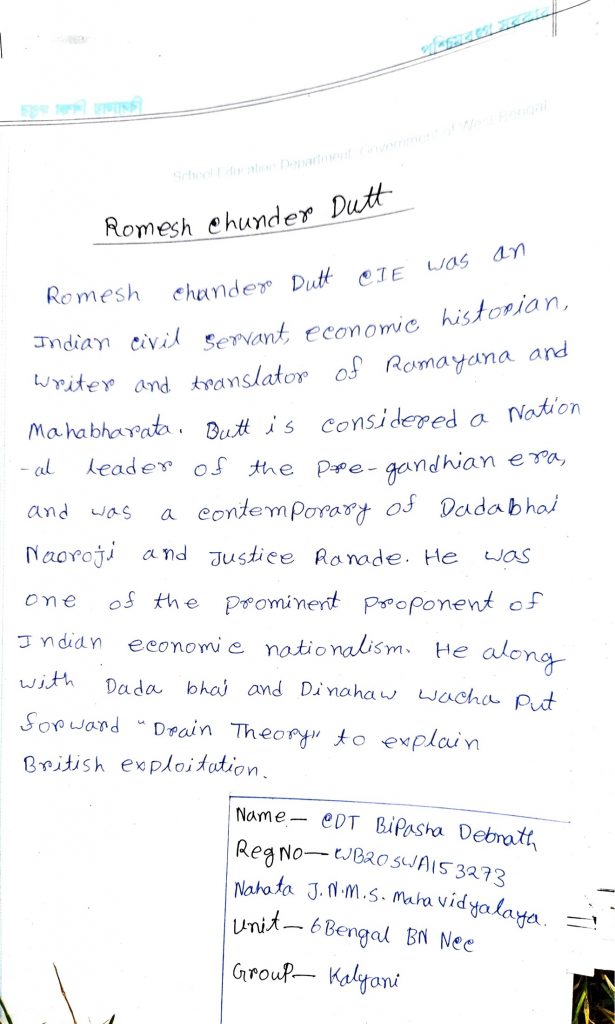 School Education Department, Government of West Bengal
Romesh Chunder Dutt
Romesh Chander Dutt CIE was an
Indian civil servant, economic historian,
writer and translator of Ramayana and
Mahabharata. Dutt is considered a Nation
-al leader of the Pre-gandhian era,
and was a contemporary of Dadabhai
Naoroji and Justice Ranade. He was
one of the prominent proponent of
Indian economic nationalism. He along
with Dada bhai and Dinahaw wacha put
forward "Drain Theory" to explain
British exploitation.
Name - CDT Bipasha Debnath
Reg No - WB20SWA153273
Nahata J.N.M.S. Mahavidyalaya.
Unit - 6 Bengal BN Ncc
Group - Kalyani